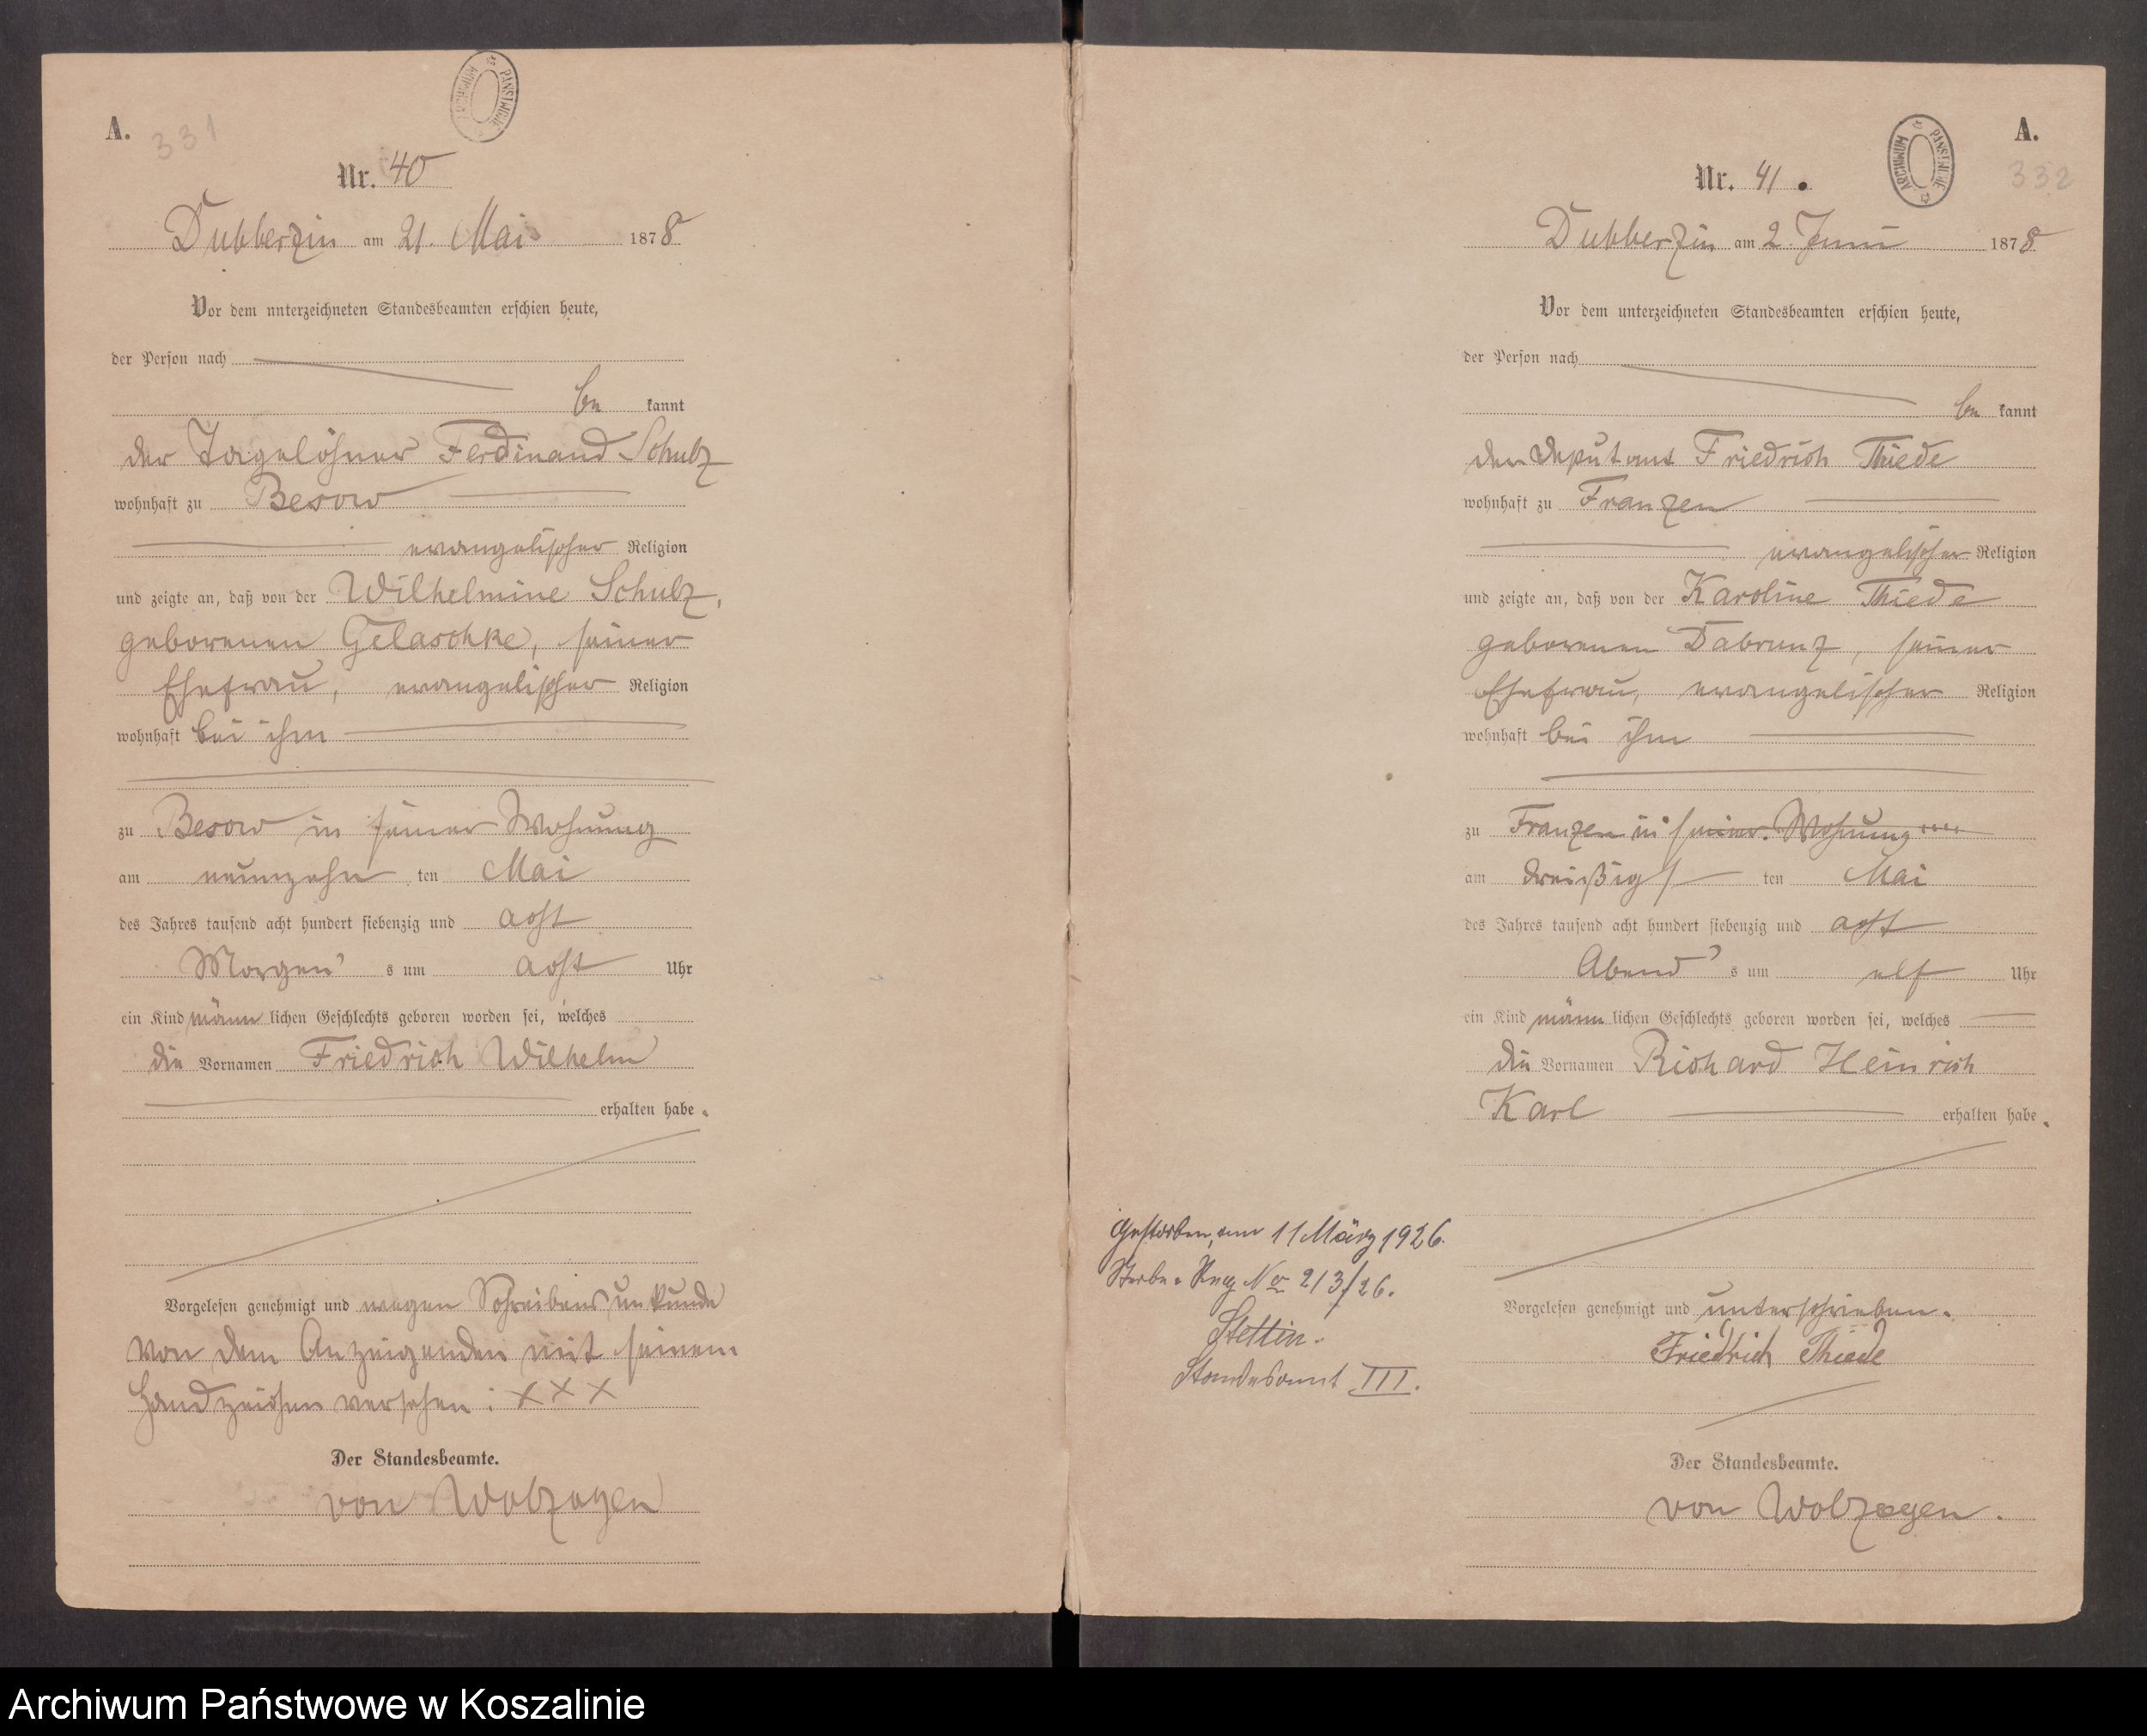 A.
331
ARCHIWUM PAŃSTWOWE
Nr. 40
Dubberzin am 21. Mai 1878
Vor dem unterzeichneten Standesbeamten erschien heute,
der Person nach
be kannt
der Tagelöhner Ferdinand Schulz
wohnhaft zu Besow
evangelischer Religion
und zeigte an, daß von der Wilhelmine Schulz,
geborenen Gelaschke, seiner
Ehefrau, evangelischer Religion
wohnhaft bei ihm
zu Besow in seiner Wohnung
am neunzehn ten Mai
des Jahres tausend acht hundert siebenzig und acht
Morgen s um acht Uhr
ein Kind männ lichen Geschlechts geboren worden sei, welches
die Vornamen Friedrich Wilhelm
erhalten habe.
Vorgelesen genehmigt und wegen Schreibens unkunde
von dem Anzeigenden mit seinem
Handzeichen versehen: XXX
Der Standesbeamte.
von Wolzogen
A.
332
ARCHIWUM PAŃSTWOWE
Nr. 41.
Dubberzin am 2. Juni 1878
Vor dem unterzeichneten Standesbeamten erschien heute,
der Person nach
be kannt
der Deputant Friedrich Thiede
wohnhaft zu Franzen
evangelischer Religion
und zeigte an, daß von der Karoline Thiede
geborenen Dabrunz, seiner
Ehefrau, evangelischer Religion
wohnhaft bei ihm
zu Franzen in seiner Wohnung
am dreißigs ten Mai
des Jahres tausend acht hundert siebenzig und acht
Abend s um elf Uhr
ein Kind männ lichen Geschlechts geboren worden sei, welches
die Vornamen Richard Heinrich
Karl erhalten habe.
Vorgelesen genehmigt und unterschrieben.
Friedrich Thiede
Der Standesbeamte.
von Wolzogen.
Gestorben am 11 März 1926.
Sterbe-Reg No 213/26.
Stettin.
Standesamt III.
Archiwum Państwowe w Koszalinie